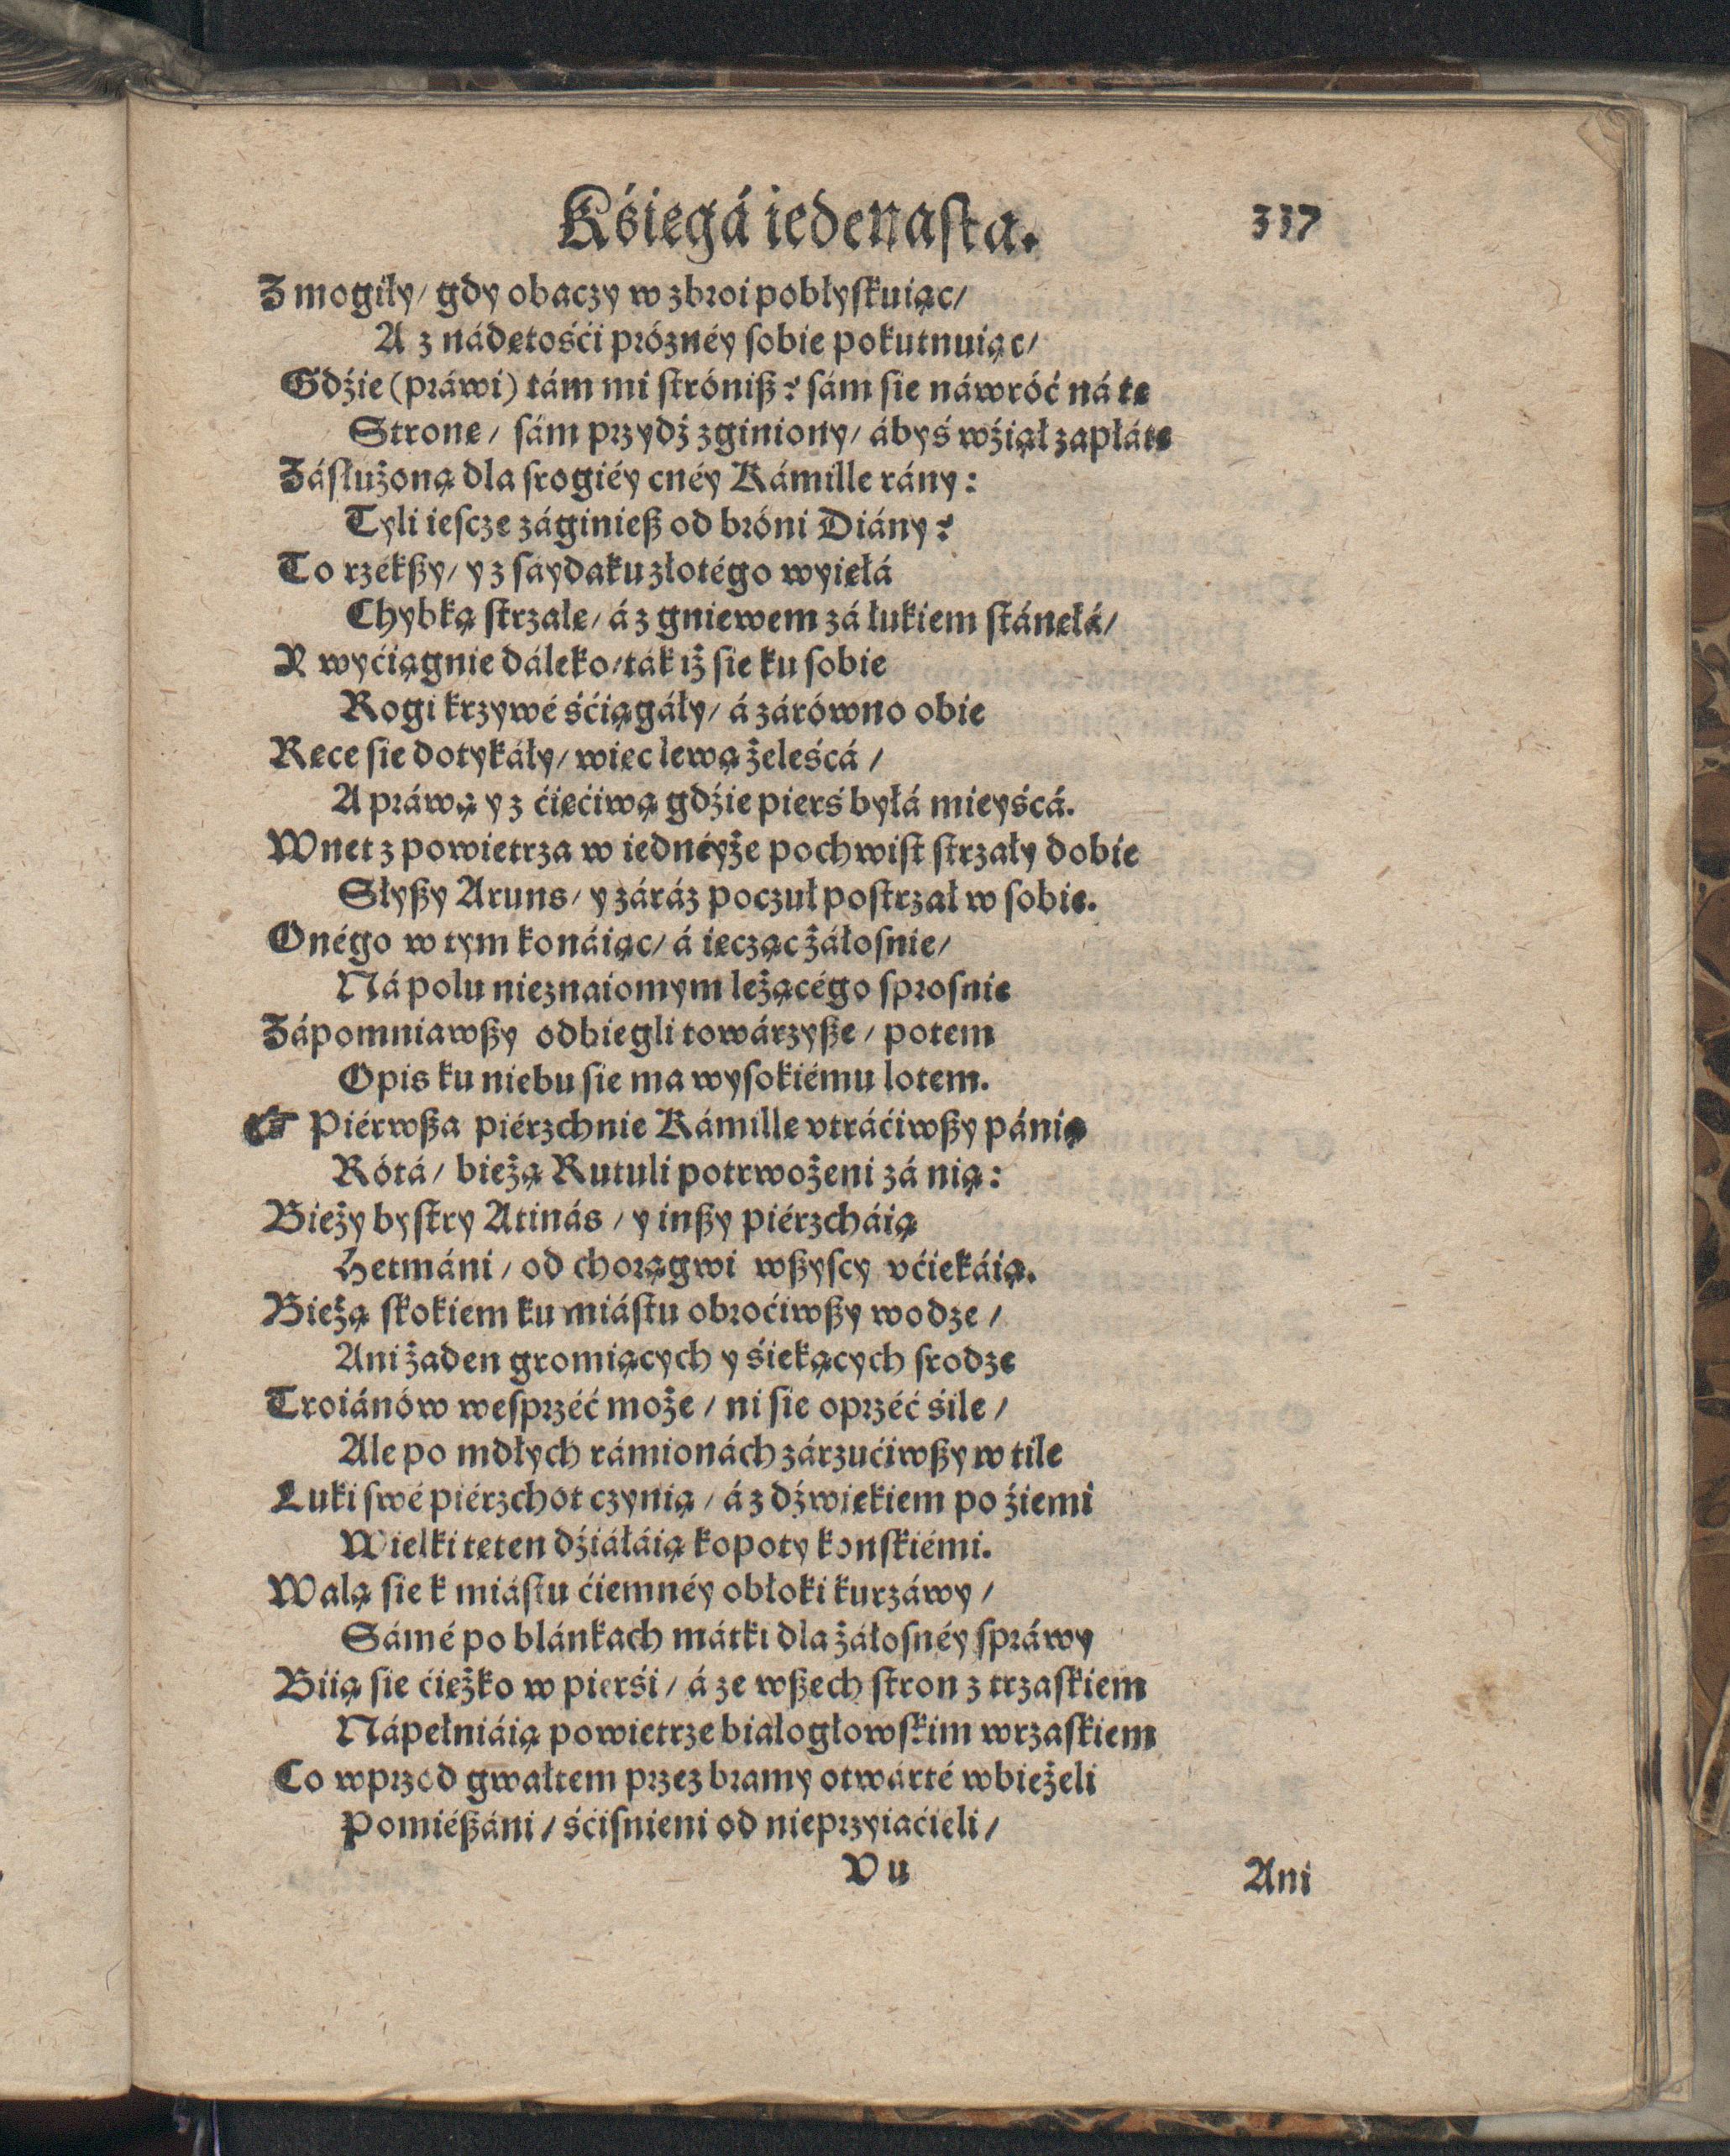 Kśięgá iedenaſta. 337
Z mogiły/ gdy obaczy w zbroi pobłyſkuiąc/
A z nádętośći próznéy ſobie pokutnuiąc/
Gdźie (práwi) tám mi ſtróniß? ſám ſie náwróć ná tę
Stronę/ ſám przydź zginiony/ ábyś wźiął zapłátę
Záſłużoną dla ſrogiéy cnéy Kámille rány:
Tyli ieſcze záginieß od bróni Diány?
To rzékßy/ y z ſaydaku złotégo wyięłá
Chybką ſtrzałę/ á z gniewem zá łukiem ſtánęłá/
Y wyćiągnie dáleko/ ták iż ſie ku ſobie
Rogi krzywé śćiągáły/ á zárówno obie
Ręce ſie dotykáły/ więc lewą żeleścá/
A práwą y z ćięćiwą gdźie pierś byłá mieyścá.
Wnet z powietrza w iednéyże pochwiſt ſtrzały dobie
Słyßy Aruns/ y záráz poczuł poſtrzał w ſobie.
Onégo w tym konáiąc/ á ięcząc żáłoſnie/
Ná polu nieznaiomym leżącégo ſproſnie
Zápomniawßy odbiegli towárzyße/ potem
Opis ku niebu ſie ma wyſokiému lotem.
☞ Piérwßa piérzchnie Kámille vtráćiwßy pánią
Rótá/ bieżą Rutuli potrwożeni zá nią:
Bieży byſtry Atinás/ y inßy piérzcháią
Hetmáni/ od chorągwi wßyſcy vćiekáią.
Bieżą ſkokiem ku miáſtu obroćiwßy wodze/
Ani żaden gromiących y śiekących ſrodze
Troiánów weſprzéć może/ ni ſie oprzéć śile/
Ale po mdłych rámionách zárzućiwßy w tile
Luki ſwé piérzchot czynią/ á z dźwiękiem po źiemi
Wielki teten dźiáłáią kopoty konſkiémi.
Walą ſie k miáſtu ćiemnéy obłoki kurzáwy/
Sámé po blánkach mátki dla żáłoſnéy ſpráwy
Biią ſie ćiężko w pierśi/ á ze wßech ſtron z trzaſkiem
Nápełniáią powietrze białogłowſkim wrzaſkiem
Co wprzod gwałtem przez bramy otwárté wbieżeli
Pomiéßáni/ śćiſnieni od nieprzyiaćieli/
Vu Ani